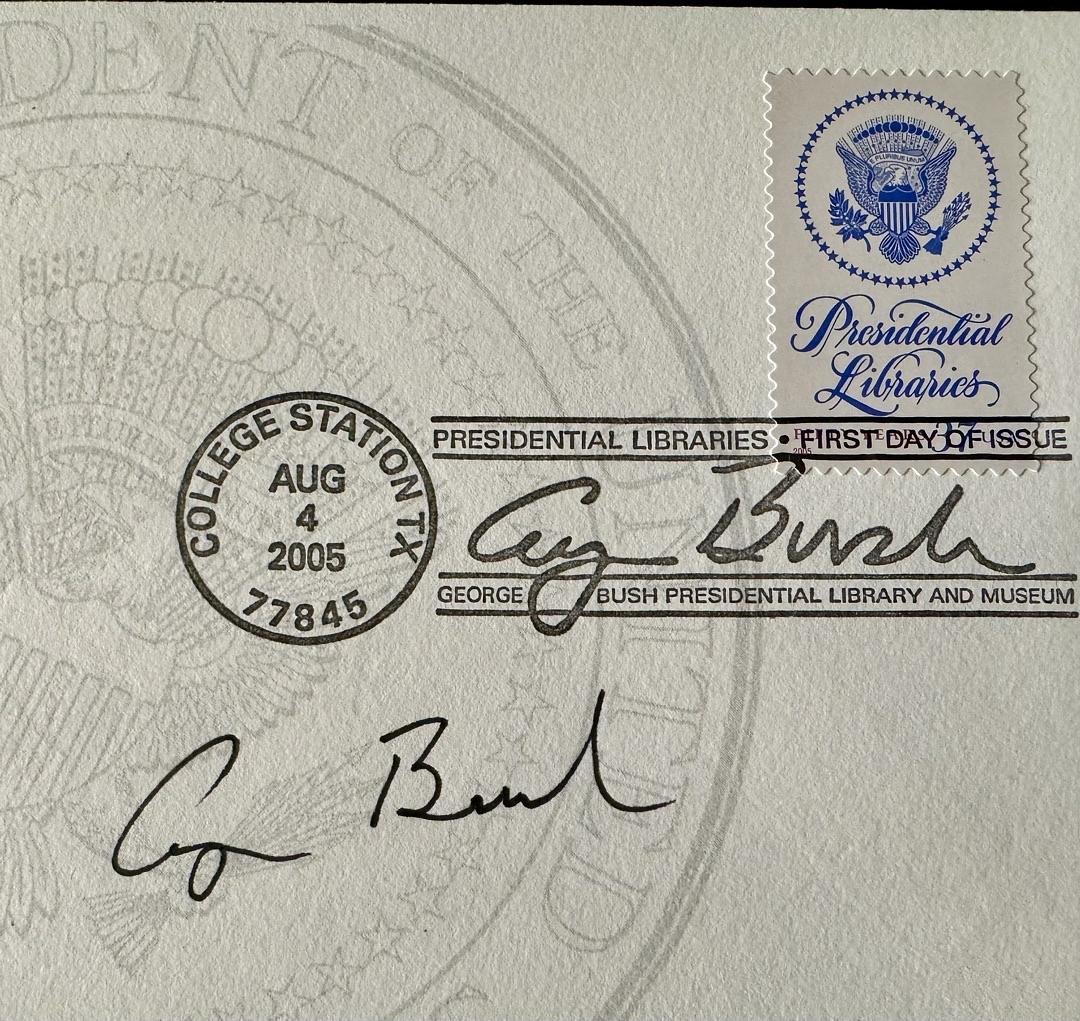 PRESIDENT OF THE UNITED
E PLURIBUS UNUM
Presidential
Libraries
37
2005
COLLEGE STATION TX
AUG
4
2005
77845
PRESIDENTIAL LIBRARIES • FIRST DAY OF ISSUE
George Bush
GEORGE BUSH PRESIDENTIAL LIBRARY AND MUSEUM
George Bush